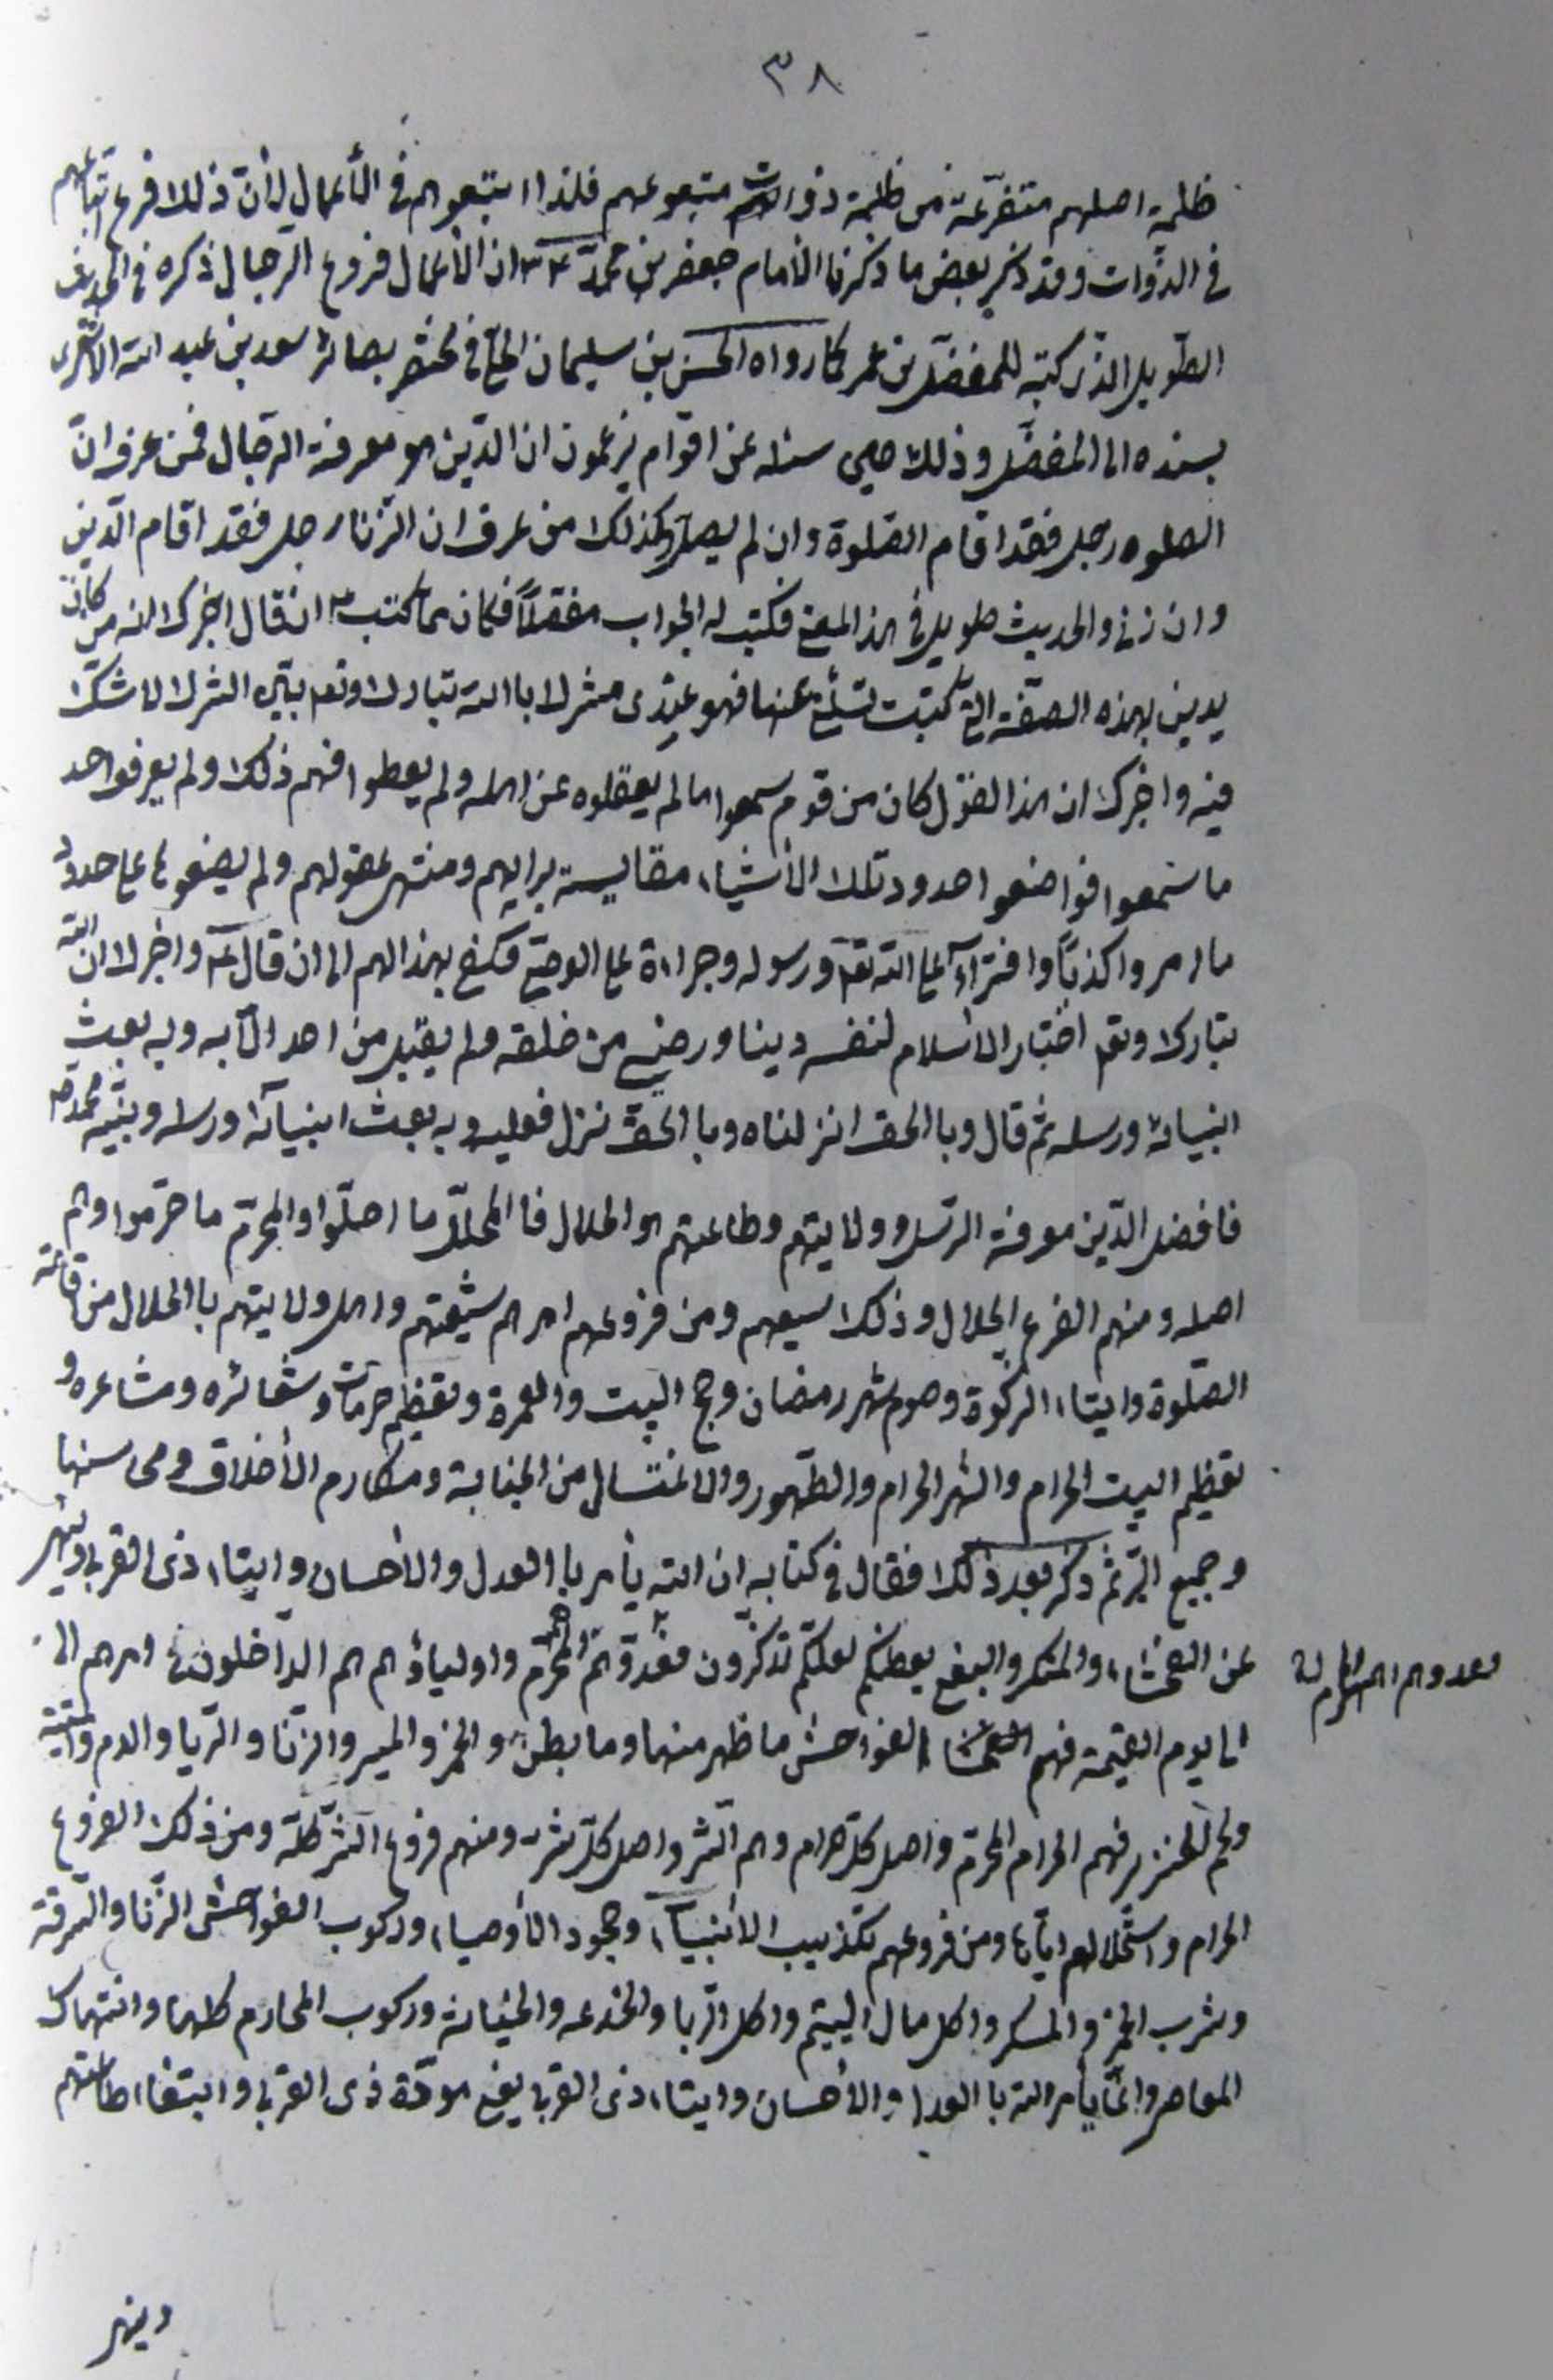 ٣٨
ظلمة اصلهم متفرعة من ظلمة ذوات متبوعهم فلذا اتبعوهم في الأعمال لأن ذلك فرع اتباعهم
في الذوات وقد ذكر بعض ما ذكرنا الامام جعفر بن محمد ع ان الأعمال فروع الرجال ذكره في الحديث
الطويل الذي كتبه للمفضل بن عمر كما رواه الحسن بن سليمان الحلي في مختصر بصائر سعد بن عبد الله الاشعري
بسنده الى المفضل وذلك حين سئله عن اقوام يزعمون ان الدين هو معرفة الرجال فمن عرف ان
الصلوة رجل فقد اقام الصلوة وان لم يصل وكذلك من عرف ان الزنا رجل فقد اقام الدين
وان زنى والحديث طويل في هذا المعنى فكتب له الجواب مفصلاً فكان مما كتب ع ان قال اخبرك انه من كان
يدين بهذه الصفة التي كتبت تسئلني عنها فهو عندي مشرك باالله تبارك وتعا بيّن الشرك لا شك
فيه واخبرك ان هذا القول كان من قوم سمعوا ما لم يعقلوه عن اهله ولم يعطوا فهم ذلك ولم يعرفوا حد
ما سمعوا فواضعوا حدود تلك الأشياء مقايسة برايهم ومنتهى عقولهم ولم يضعوها على حدود
ما امروا كذباً وافتراءً على الله تعا ورسوله وجراءة على المعاصي فكفى بهذا لهم الى ان قال ع واخبرك ان الله
تبارك وتعا اختار الاسلام لنفسه دينا ورضي من خلقه ولم يقبل من احد الا به وبه بعث
انبيائه ورسله ثم قال وباالحق انزلناه وباالحق نزل فعليه وبه بعث انبيائه ورسله ونبيه محمد ص
فافضل الدين معرفة الرسل وولايتهم وطاعتهم هو الحلال فاالمحلل ما احلوا والمحرم ما حرموا وهم
اصله ومنهم الفرع الحلال وذلك سعيهم ومن فروعهم امرهم شيعتهم واهل ولايتهم باالحلال من اقامة
الصلوة وايتاء الزكوة وصوم شهر رمضان وحج البيت والعمرة وتعظيم حرمات وشعائره ومشاعره و
تعظيم البيت الحرام والشهر الحرام والطهور والاغتسال من الجنابة ومكارم الأخلاق ومحاسنها
وجميع البر ثم ذكر بعد ذلك فقال في كتابه ان الله يأمر باالعدل والاحسان وايتاء ذي القربى وينهى
عن الفحشاء والمنكر والبغي يعظكم لعلكم تذكرون فعدوهم المحرم واولياؤهم هم الداخلون في امرهم الى
الى يوم القيمة فهم الفواحش ما ظهر منها وما بطن والخمر والميسر والزنا والربا والدم والميتة
ولحم الخنزير فهم الحرام المحرم واصل كل حرام وهم الشر واصل كل شر ومنهم فروع الشر كله ومن ذلك الفروع
الحرام واستحلالهم اياها ومن فروعهم تكذيب الانبياء وجحود الأوصياء وركوب الفواحش الزنا والسرقة
وشرب الخمر والمسكر واكل مال اليتيم واكل الربا والخدعه والخيانة وركوب المحارم كلها وانتهاك
المعاصي وانما يأمر الله باالعدل والاحسان وايتاء ذي القربى يعني مودّة ذي القربى وابتغاء طاعتهم
وينهى